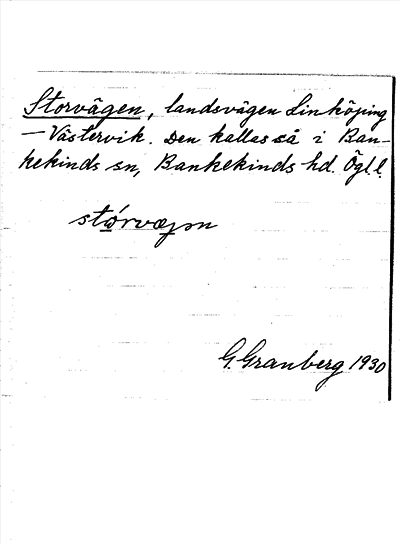 Storvägen, landsvägen Linköping
— Västervik. Den kallas så i Ban-
kekinds sn, Bankekinds hd. Ögl.l.
stórvægɔn
G. Granberg 1930